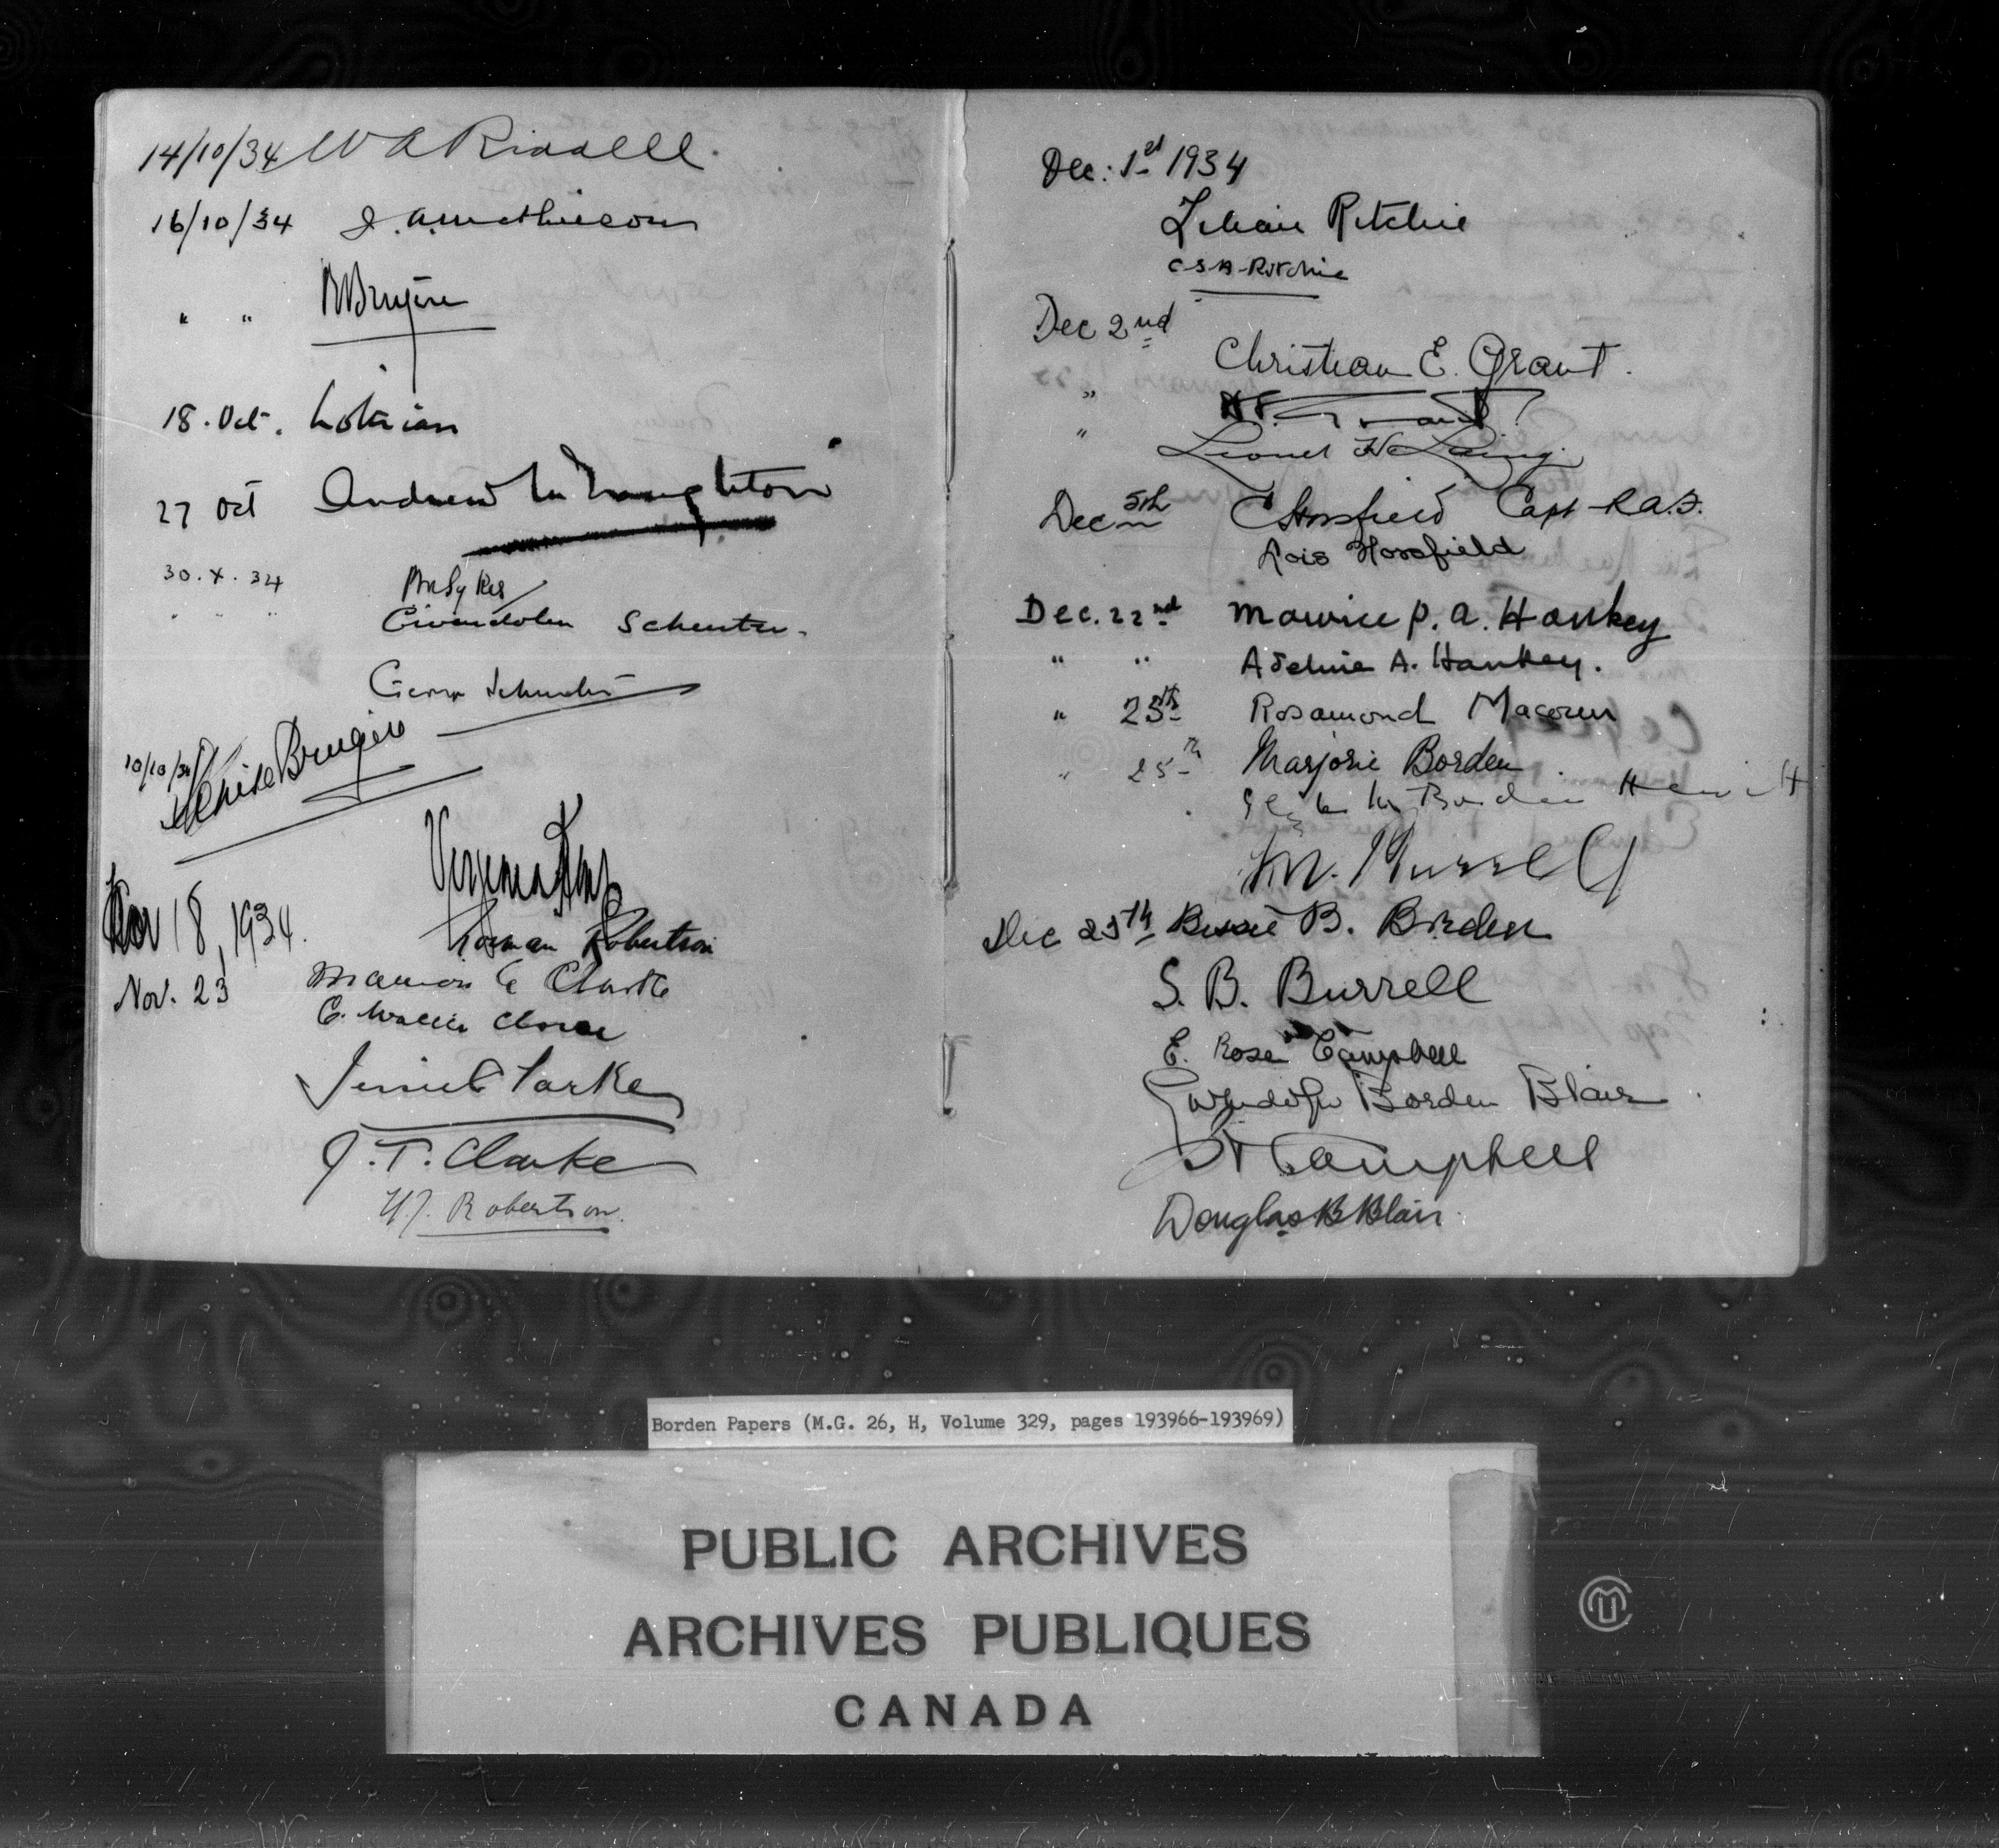 14/10/34 W A Riddell.
16/10/34 J. A. Mathieson
" " Bruyère
18. Oct. Lothian
27 Oct Andrew McNaughton
30. X. 34 Sykes
" " " Gwendolen Schuster.
George Schuster
10/10/34 Bruyère
Nov 18, 1934.
Norman Robertson
Nov. 23 Marion Clarke
E.
Jennie Clarke
J. T. Clarke
Robertson.
Dec: 1st 1934
Lilian Ritchie
C S A Ritchie
Dec 2nd
Christian E. Grant.
"
" Lionel H Laing
Dec 5th Horsfield Capt R.A.
Lois Horsfield
Dec. 22nd Maurice P. A. Hankey
" " Adeline A. Hankey.
" 25th Rosamond Macoun
" 25th Marjorie Borden
Borden Hewitt
M. Burrell
Dec 25th Bessie B. Borden
S. B. Burrell
E. Rose Campbell
Gwendolyn Borden Blair
Campbell
Douglas B Blair.
Borden Papers (M.G. 26, H, Volume 329, pages 193966-193969)
PUBLIC ARCHIVES
ARCHIVES PUBLIQUES
CANADA